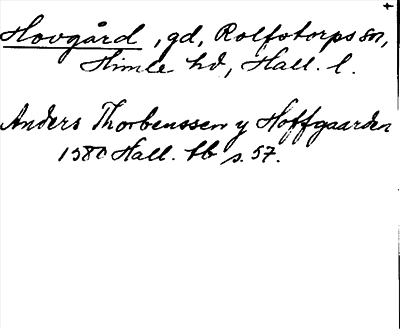 Hovgård, gd, Rolfstorps sn,
Himle hd, Hall. l.
Anders Thorbenssen y Hoffgaarden
1580 Hall. tb s. 57.